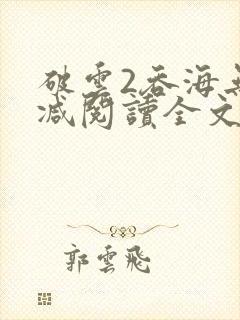 破雲2吞海無
减閱讀全文
郭雲飛